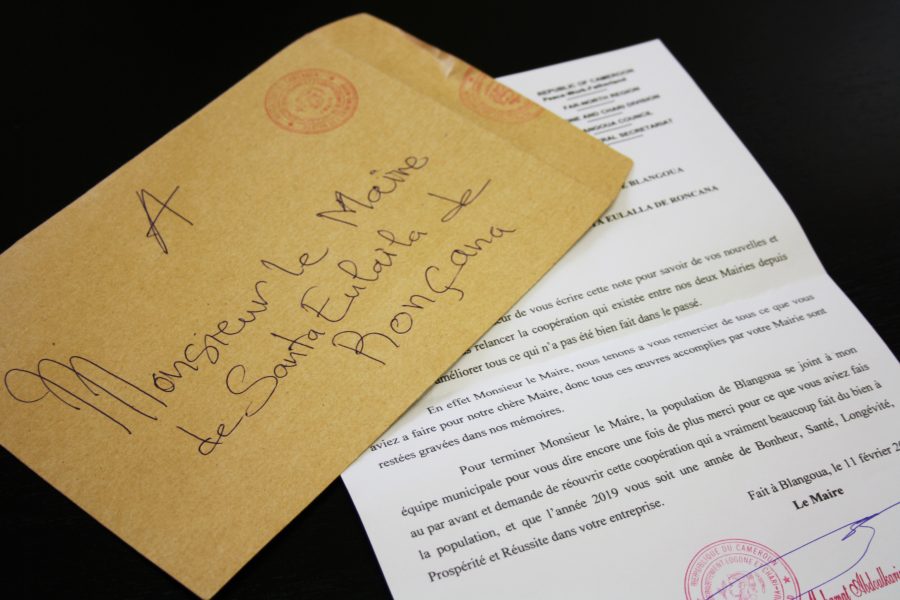 A
Monsieur le Maire
de Santa Eulalia de
Ronçana
REPUBLIC OF CAMEROON
Peace-Work-Fatherland
FAR-NORTH REGION
AND CHARI DIVISION
COUNCIL
SECRETARIAT
BLANGOUA
EULALLA DE RONCANA
de vous écrire cette note pour savoir de vos nouvelles et
relancer la coopération qui existée entre nos deux Mairies depuis
améliorer tous ce qui n'a pas été bien fait dans le passé.
En effet Monsieur le Maire, nous tenons a vous remercier de tous ce que vous
aviez a faire pour notre chère Maire, donc tous ces œuvres accomplies par votre Mairie sont
restées gravées dans nos mémoires.
Pour terminer Monsieur le Maire, la population de Blangoua se joint à mon
équipe municipale pour vous dire encore une fois de plus merci pour ce que vous aviez fais
au par avant et demande de réouvrir cette coopération qui a vraiment beaucoup fait du bien à
la population, et que l'année 2019 vous soit une année de Bonheur, Santé, Longévité,
Prospérité et Réussite dans votre entreprise.
Fait à Blangoua, le 11 février
Le Maire
REPUBLIQUE DU CAMEROUN
LOGONE ET CHARI